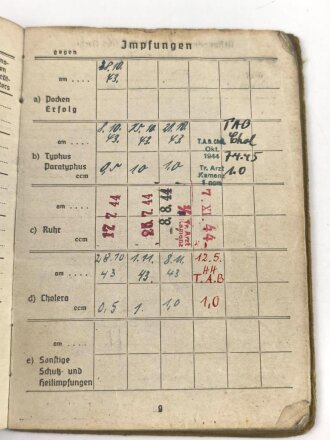 Impfungen
gegen
28.10.
am .... 43.
a) Pocken
Erfolg
8.10. 15.10. 21.10. TAB
am .... 43. 43. 43. T.A.B. Chol. Chol
Okt.
1944 7.4.45
b) Typhus
Paratyphus Tr. Arzt 1.0
ccm 0,5 1.0 1.0 Kamenz
1 ccm
am .... 17. 7. 44 25. 7. 44 8. 8. 44 7. XI. 44.
c) Ruhr Tr. Arzt
ccm
28.10 1.11. 8.11. 12.5.
am .... 43 43. 43 44
T.A.B
d) Cholera
ccm 0,5 1. 1,0 1,0
am ....
e) Sonstige
Schutz- und
Heilimpfungen
9